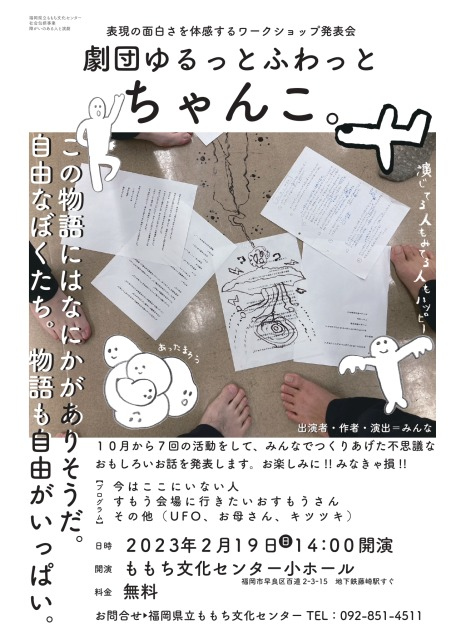 福岡県立ももち文化センター
社会包摂事業
障がいのある人と演劇
表現の面白さを体感するワークショップ発表会
劇団ゆるっとふわっと
ちゃんこ。
この物語にはなにかがありそうだ。
自由なぼくたち。物語も自由がいっぱい。
演じてる人もみてる人もハッピー
あったまろう
出演者・作者・演出＝みんな
10月から7回の活動をして、みんなでつくりあげた不思議な
おもしろいお話を発表します。お楽しみに!!みなきゃ損!!
【プログラム】
今はここにいない人
すもう会場に行きたいおすもうさん
その他（UFO、お母さん、キツツキ）
日時 2023年2月19日日14:00開演
開演 ももち文化センター小ホール
福岡市早良区百道2-3-15 地下鉄藤崎駅すぐ
料金 無料
お問合せ▶福岡県立ももち文化センター TEL：092-851-4511